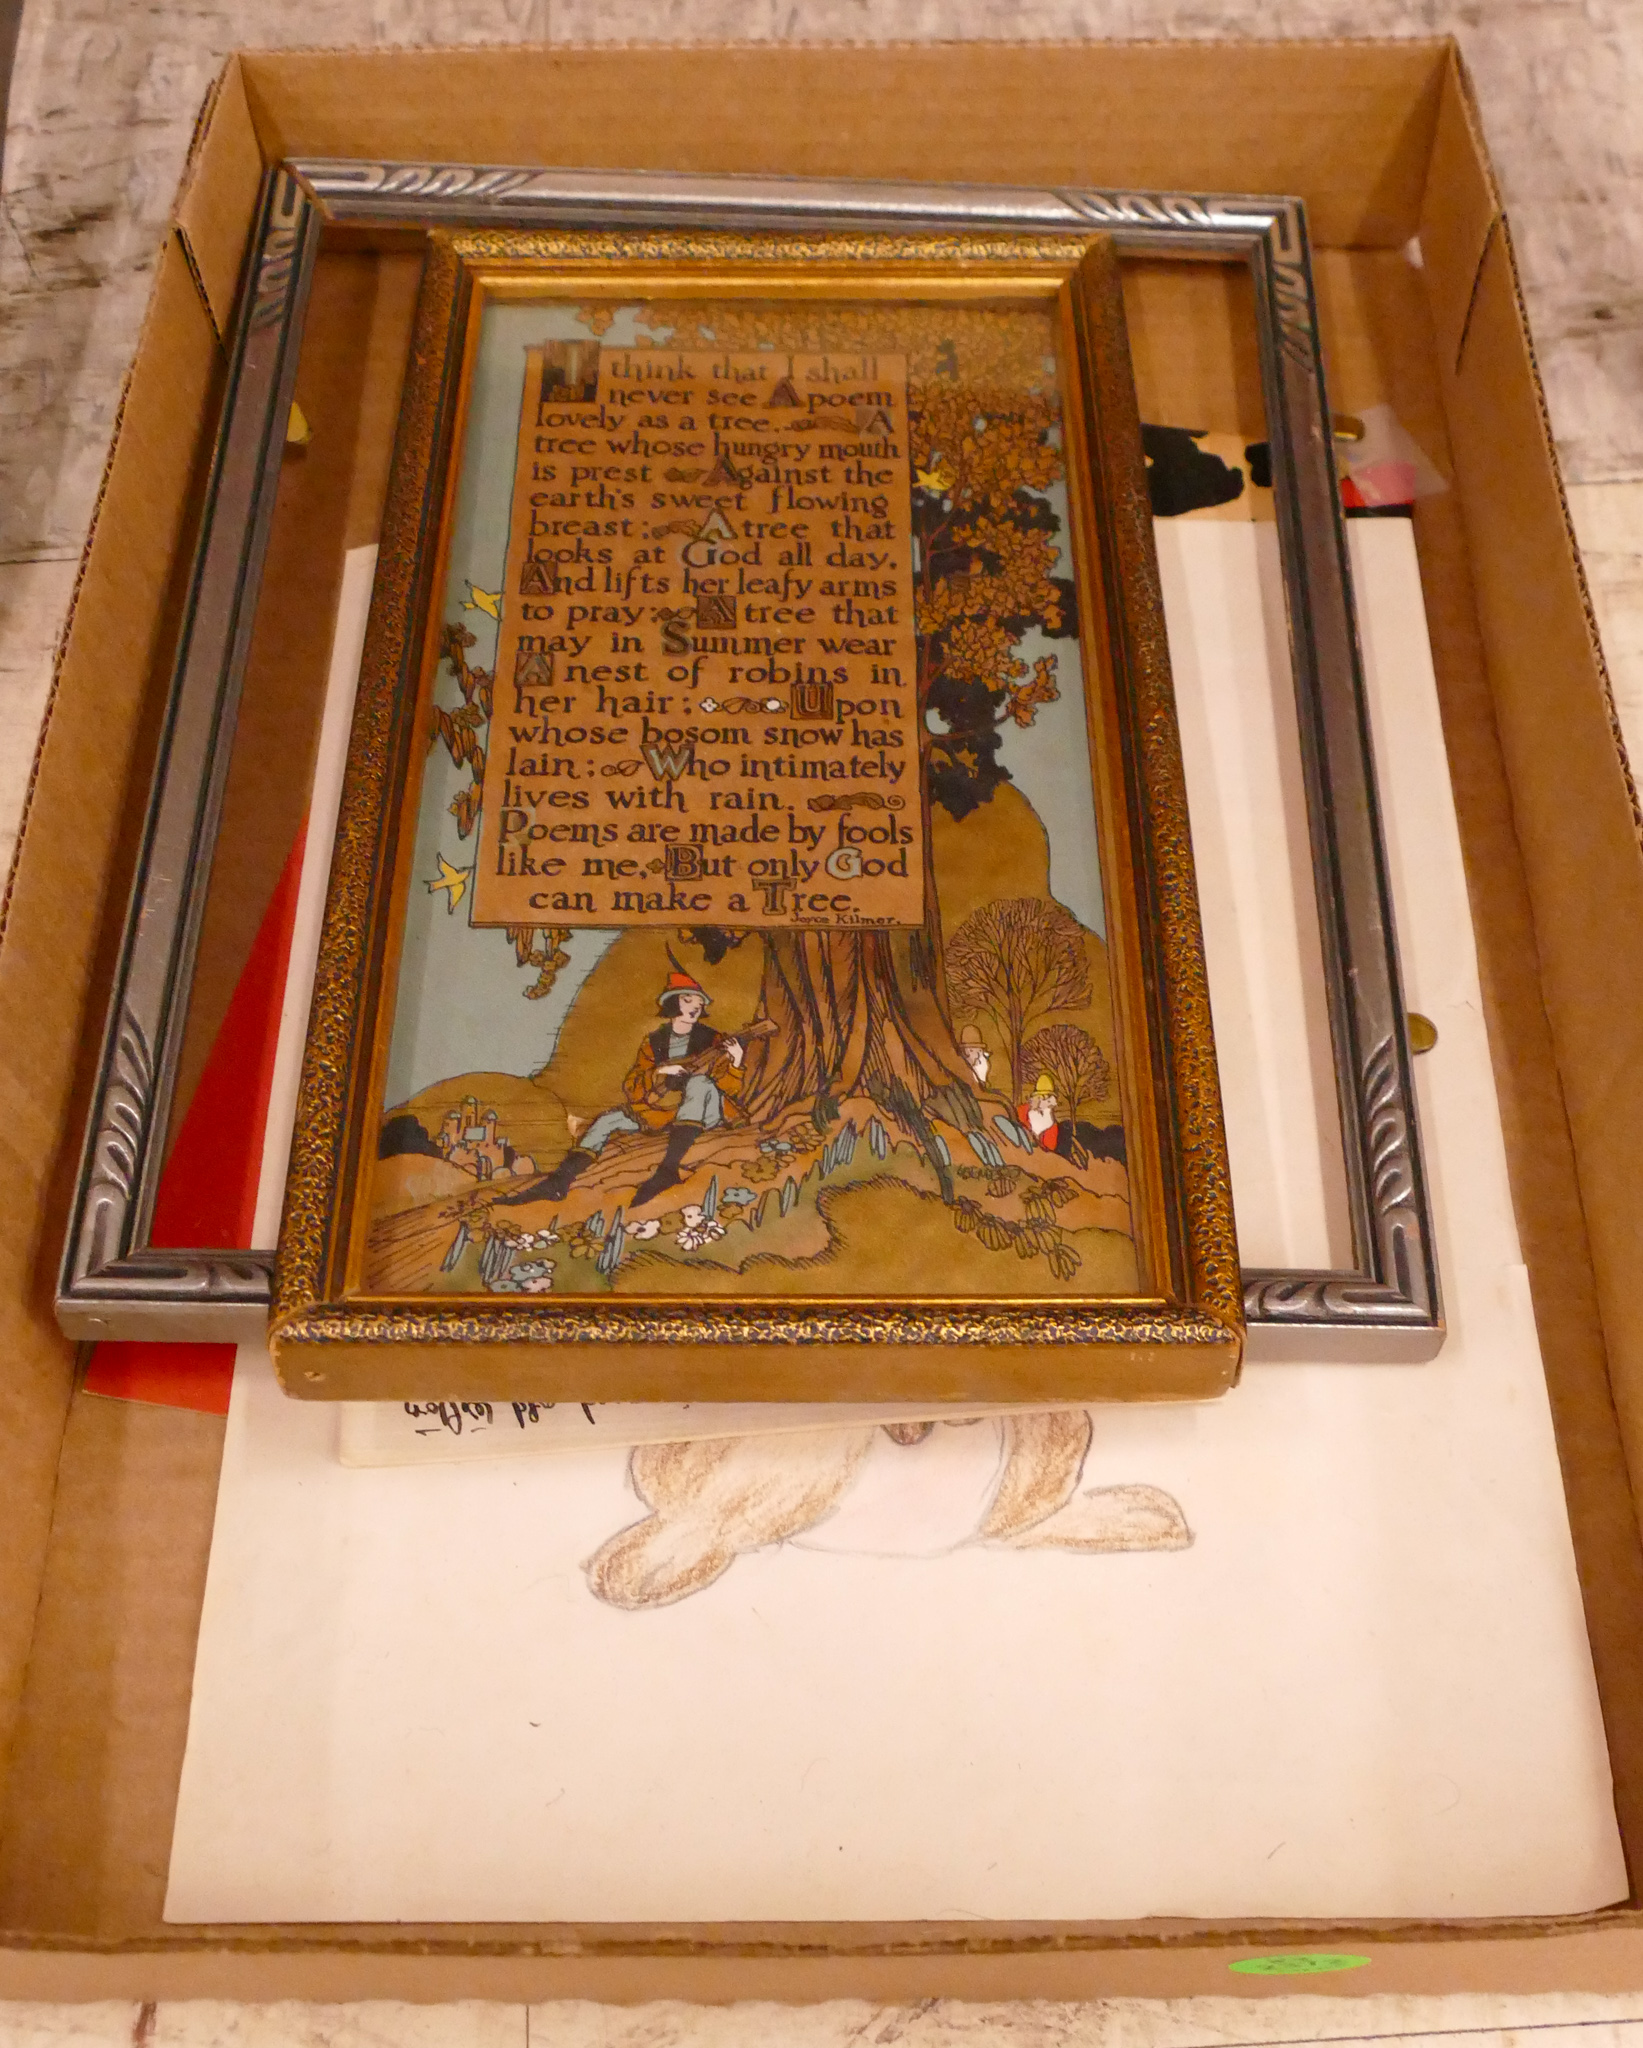 I think that I shall
never see A poem
lovely as a tree. A
tree whose hungry mouth
is prest Against the
earth's sweet flowing
breast; A tree that
looks at God all day,
And lifts her leafy arms
to pray; A tree that
may in Summer wear
A nest of robins in
her hair; Upon
whose bosom snow has
lain; Who intimately
lives with rain.
Poems are made by fools
like me, But only God
can make a Tree.
Joyce Kilmer.